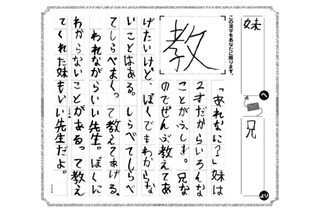 妹
へ
兄
より
この漢字をあなたに贈ります。
教
「あれなに？」妹は
２才だからいろんな
ことがふしぎ。兄な
のでぜんぶ教えてあ
げたいけど、ぼくでもわからな
いことはある。しらべてしらべ
てしらべまくって教えてあげる。
われながらいい先生。ぼくに
わからないことがあるって教え
てくれた妹もいい先生だよ。